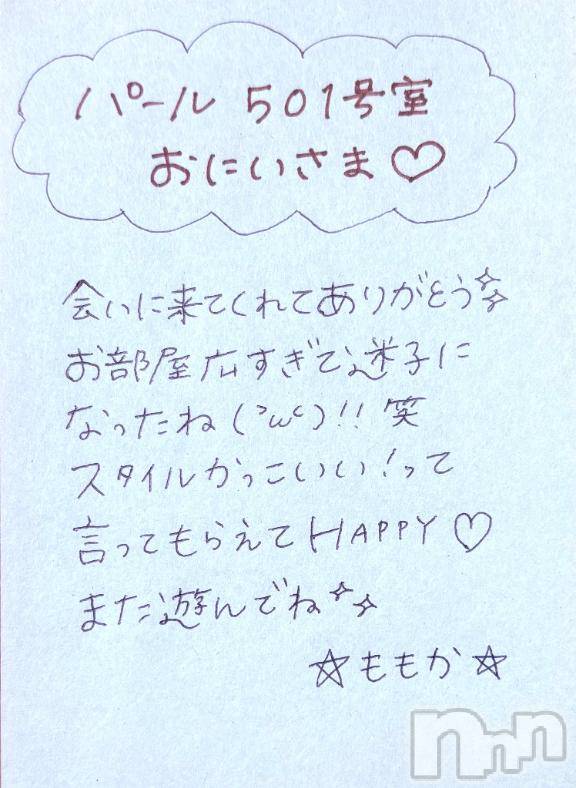 パール 501号室
おにいさま♡
会いに来てくれてありがとう✨
お部屋広すぎて迷子に
なったね(˃̵ω˂̵)!!笑
スタイルかっこいい!って
言ってもらえてHAPPY♡
また遊んでね✨
☆ももか☆
nnn